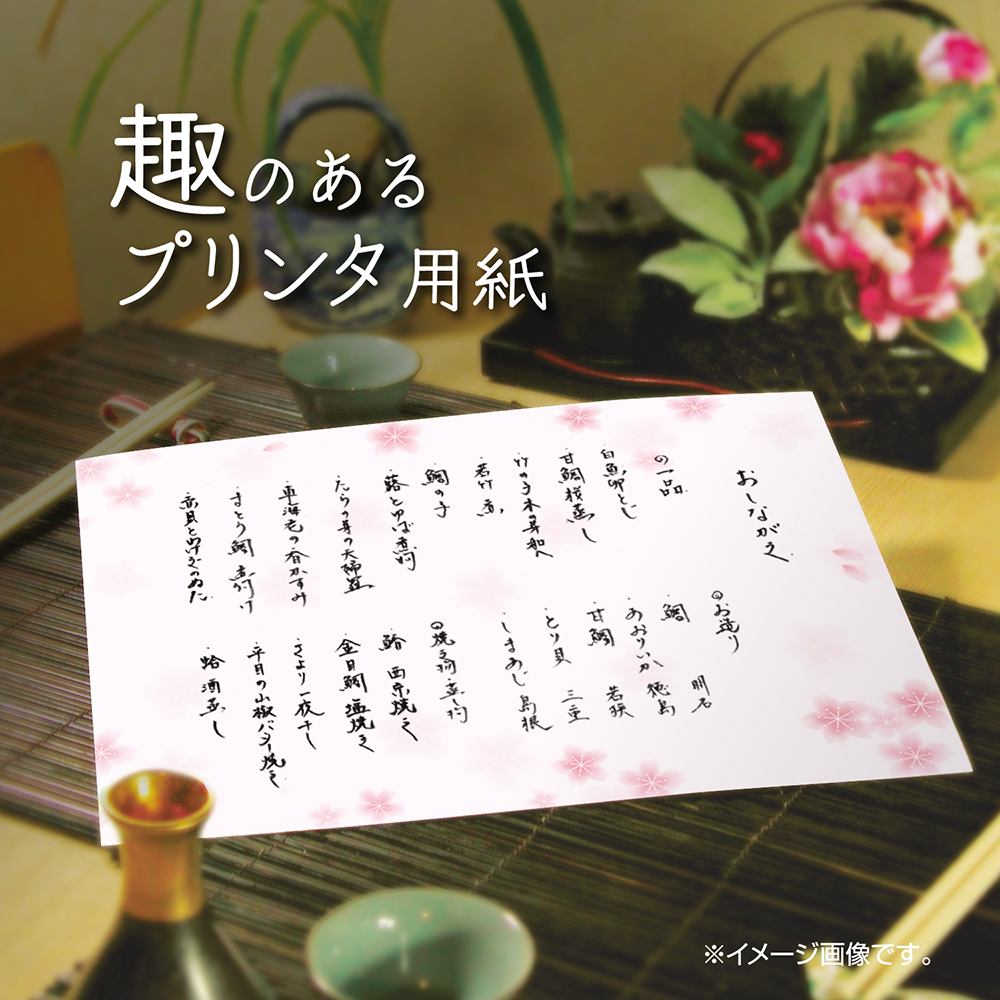 趣のある
プリンタ用紙
おしながき
の一品
・白魚卵とじ
・甘鯛桜蒸し
・竹の子木の芽和へ
・若竹煮
・鯛の子
・蕗とゆば煮付
・たらの芽の天婦羅
・車海老の香かすみ
・まとう鯛煮付け
・赤貝とわけぎのぬた
のお造り
・鯛 明石
・あおりいか 徳島
・甘鯛 若狭
・とり貝 三重
・しまあじ 島根
の焼き物蒸し物
・鮨 西京焼き
・金目鯛 塩焼き
・さより一夜干し
・平目の山椒バター焼き
・蛤酒蒸し
※イメージ画像です。